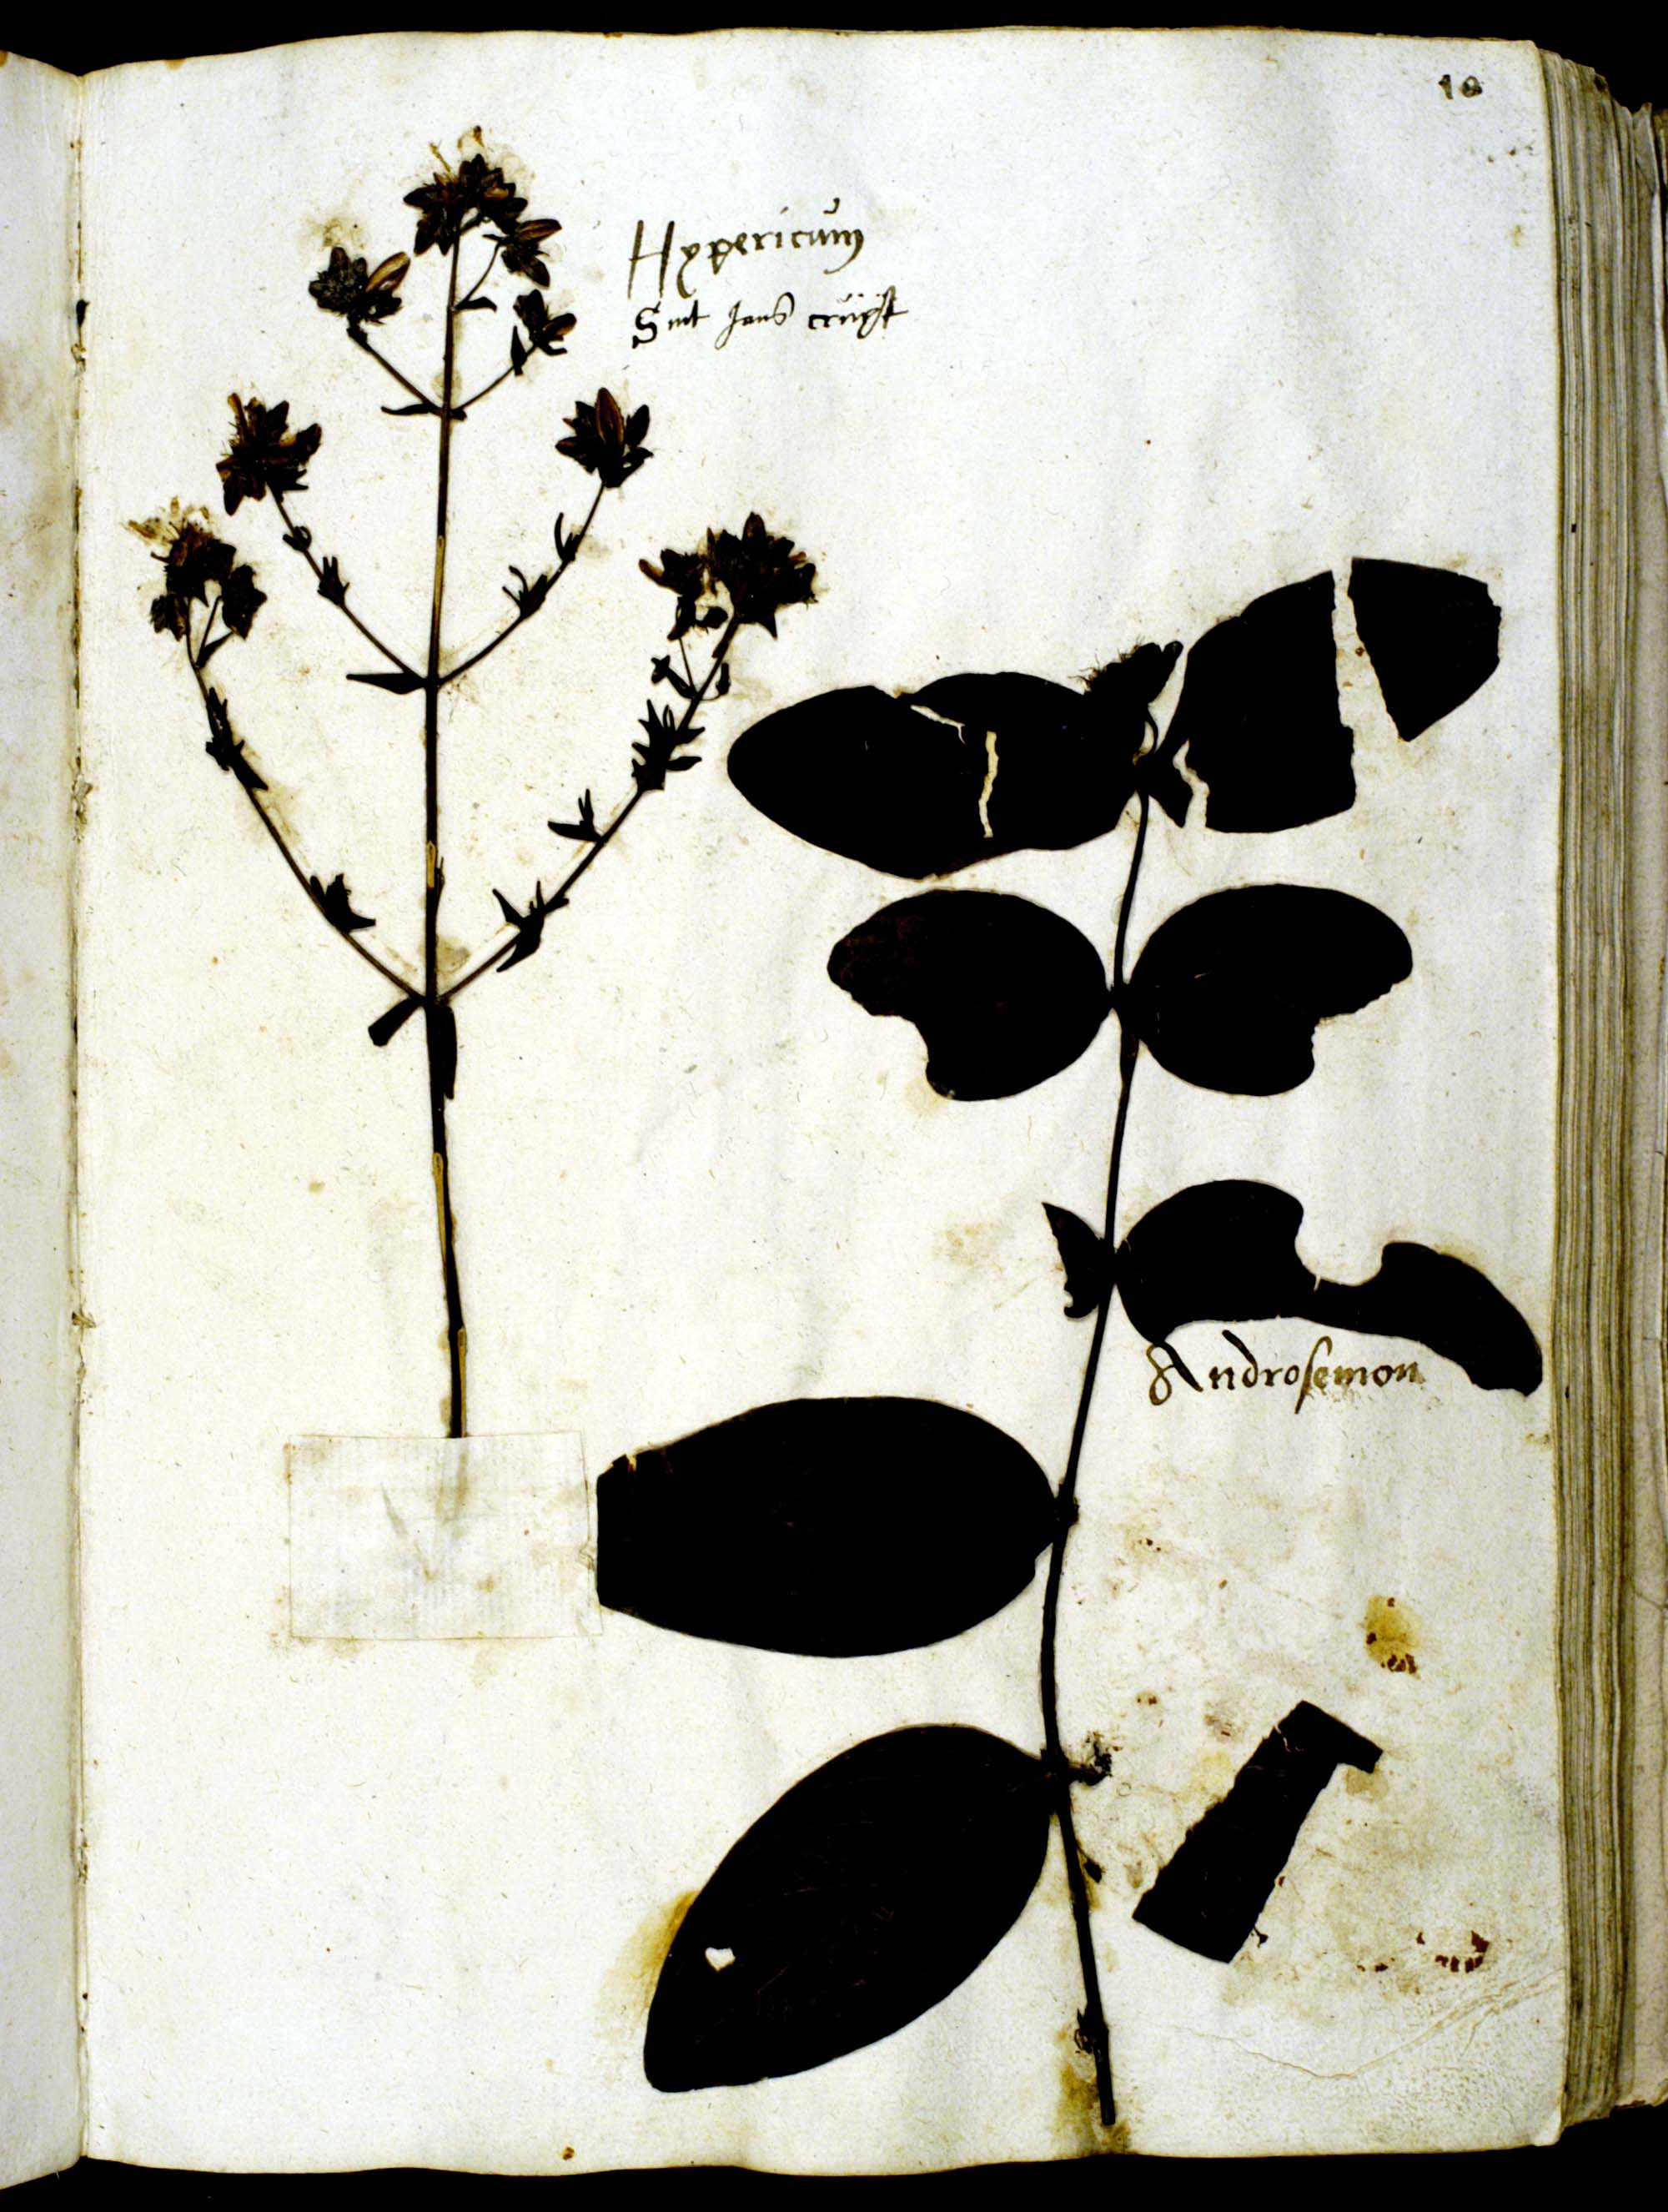 10
Hypericum
Sint Jans cruyt
Androsemon